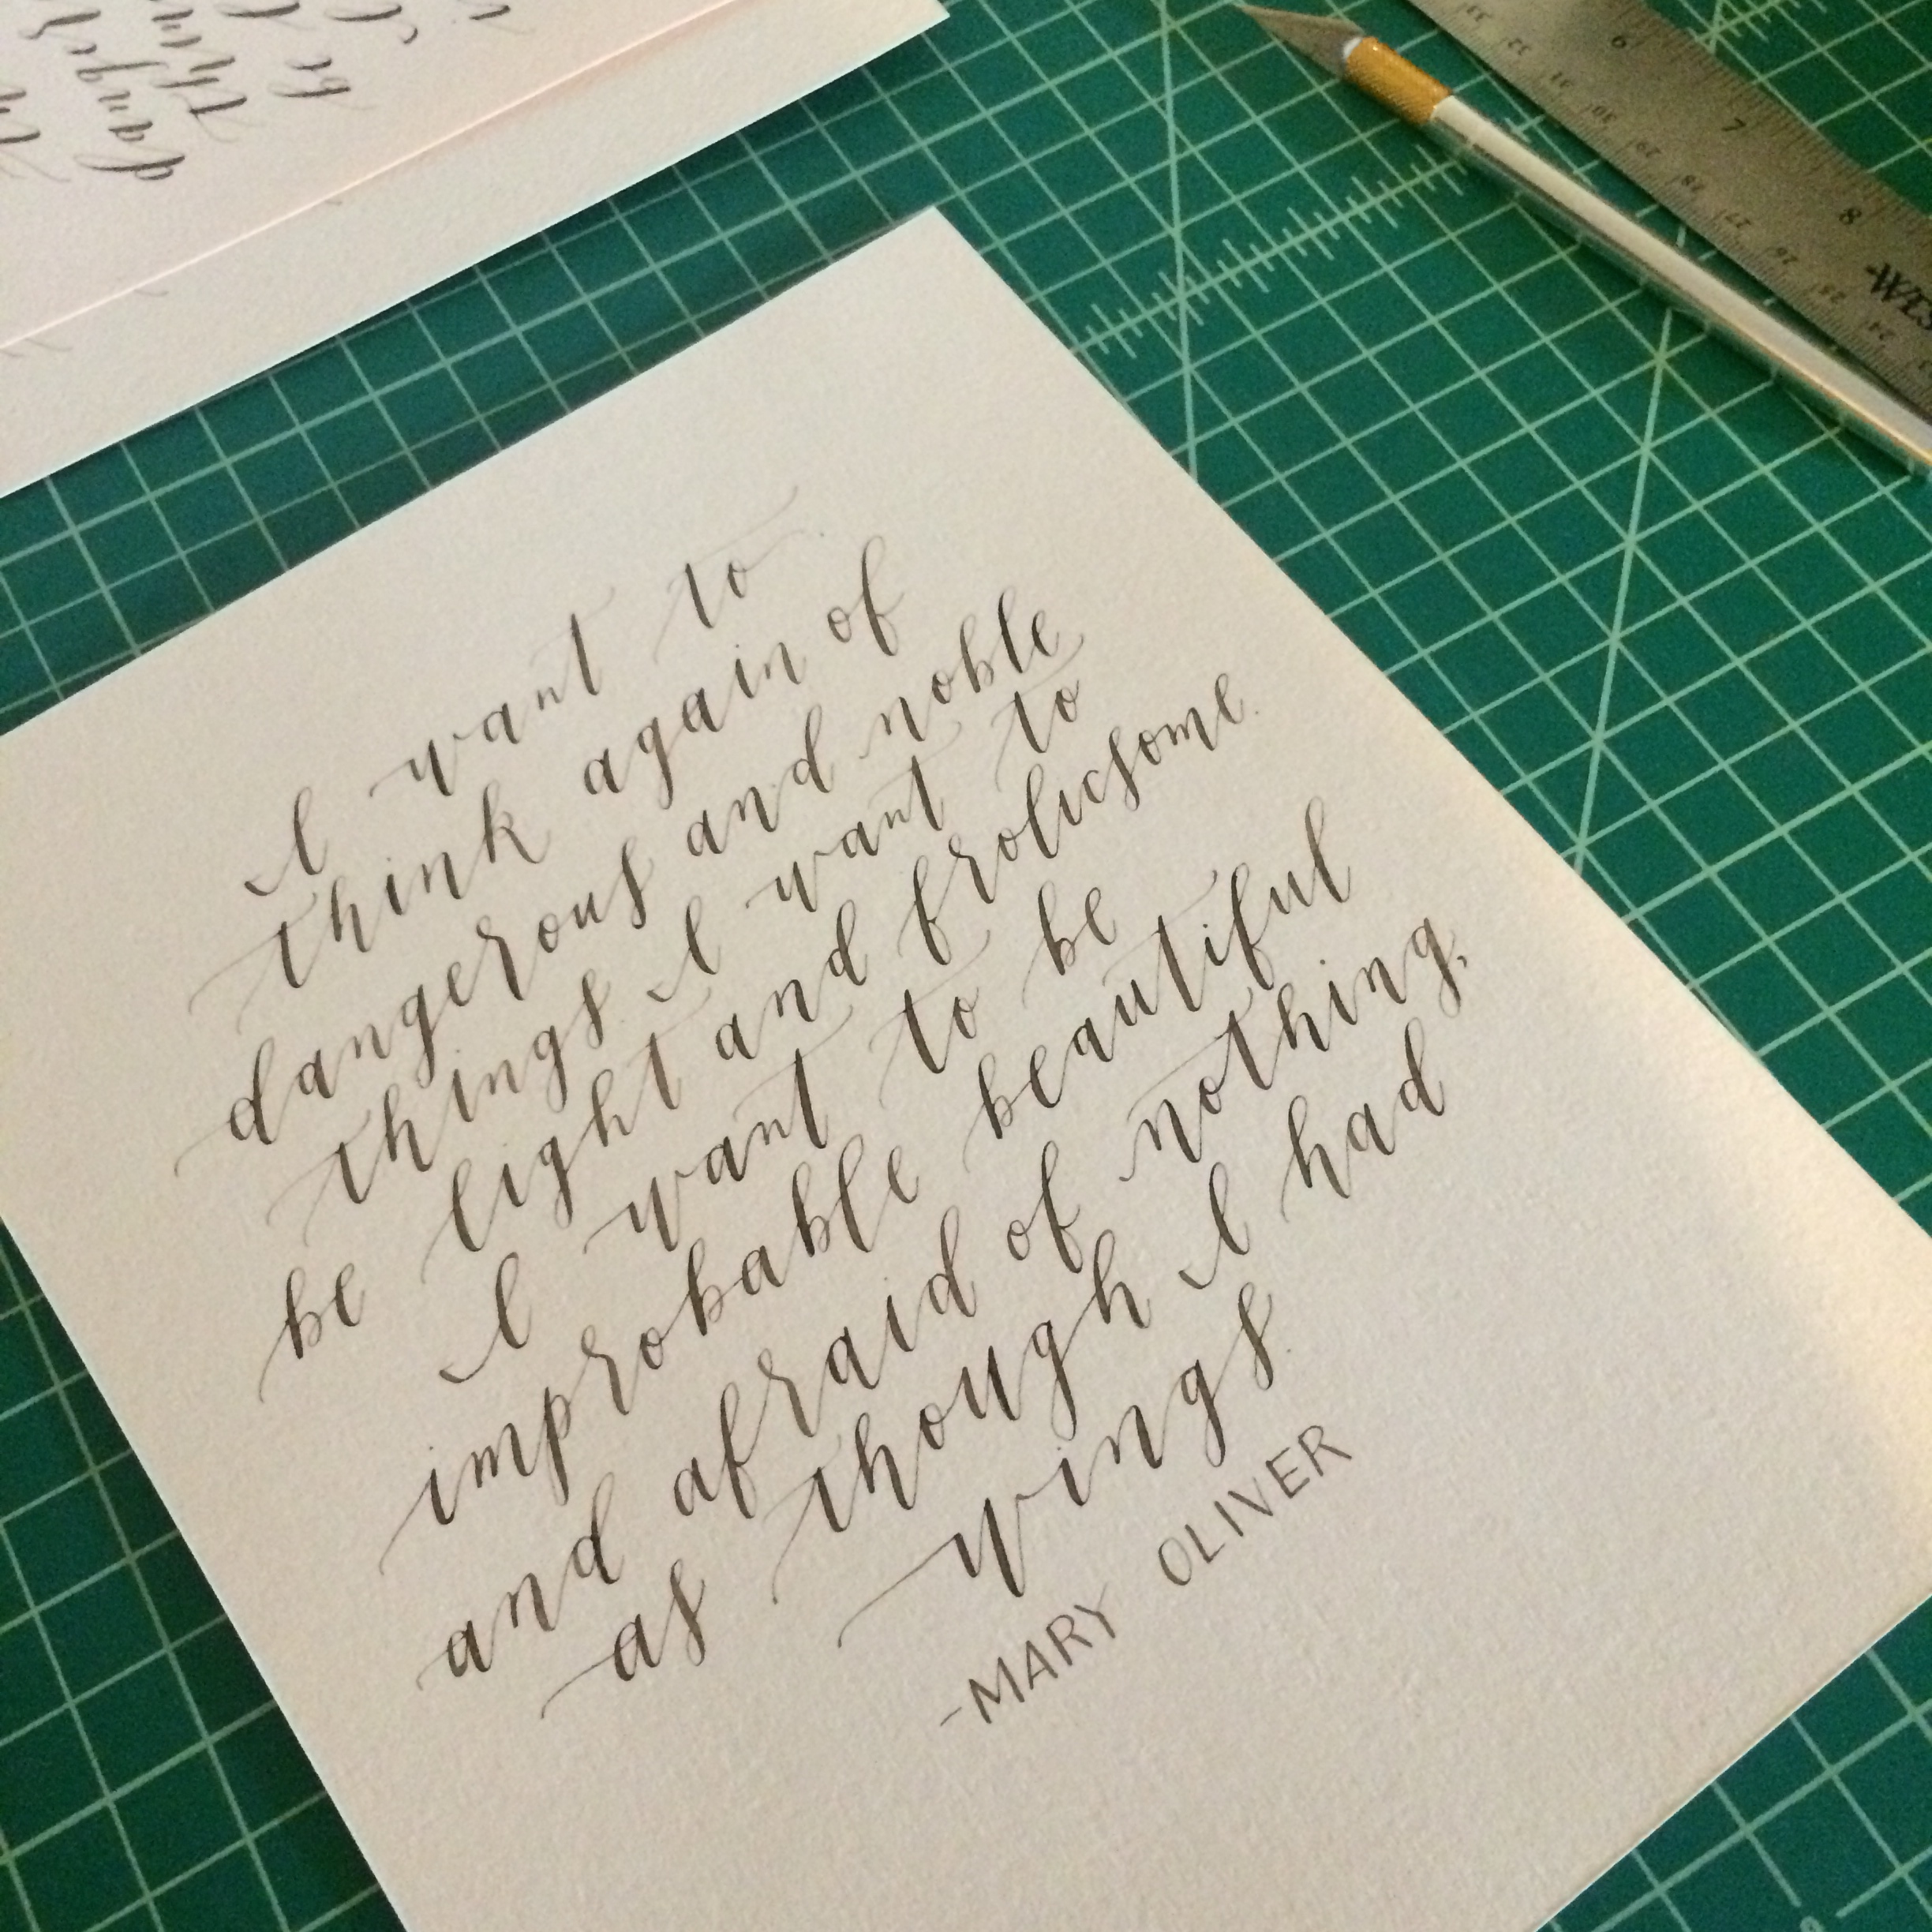 I want to
think again of
dangerous and noble
things. I want to
be light and frolicsome.
I want to be
improbable beautiful
and afraid of nothing,
as though I had
wings.
-MARY OLIVER
6
7
8
33
32
31
30
29
28
27
26
25
24